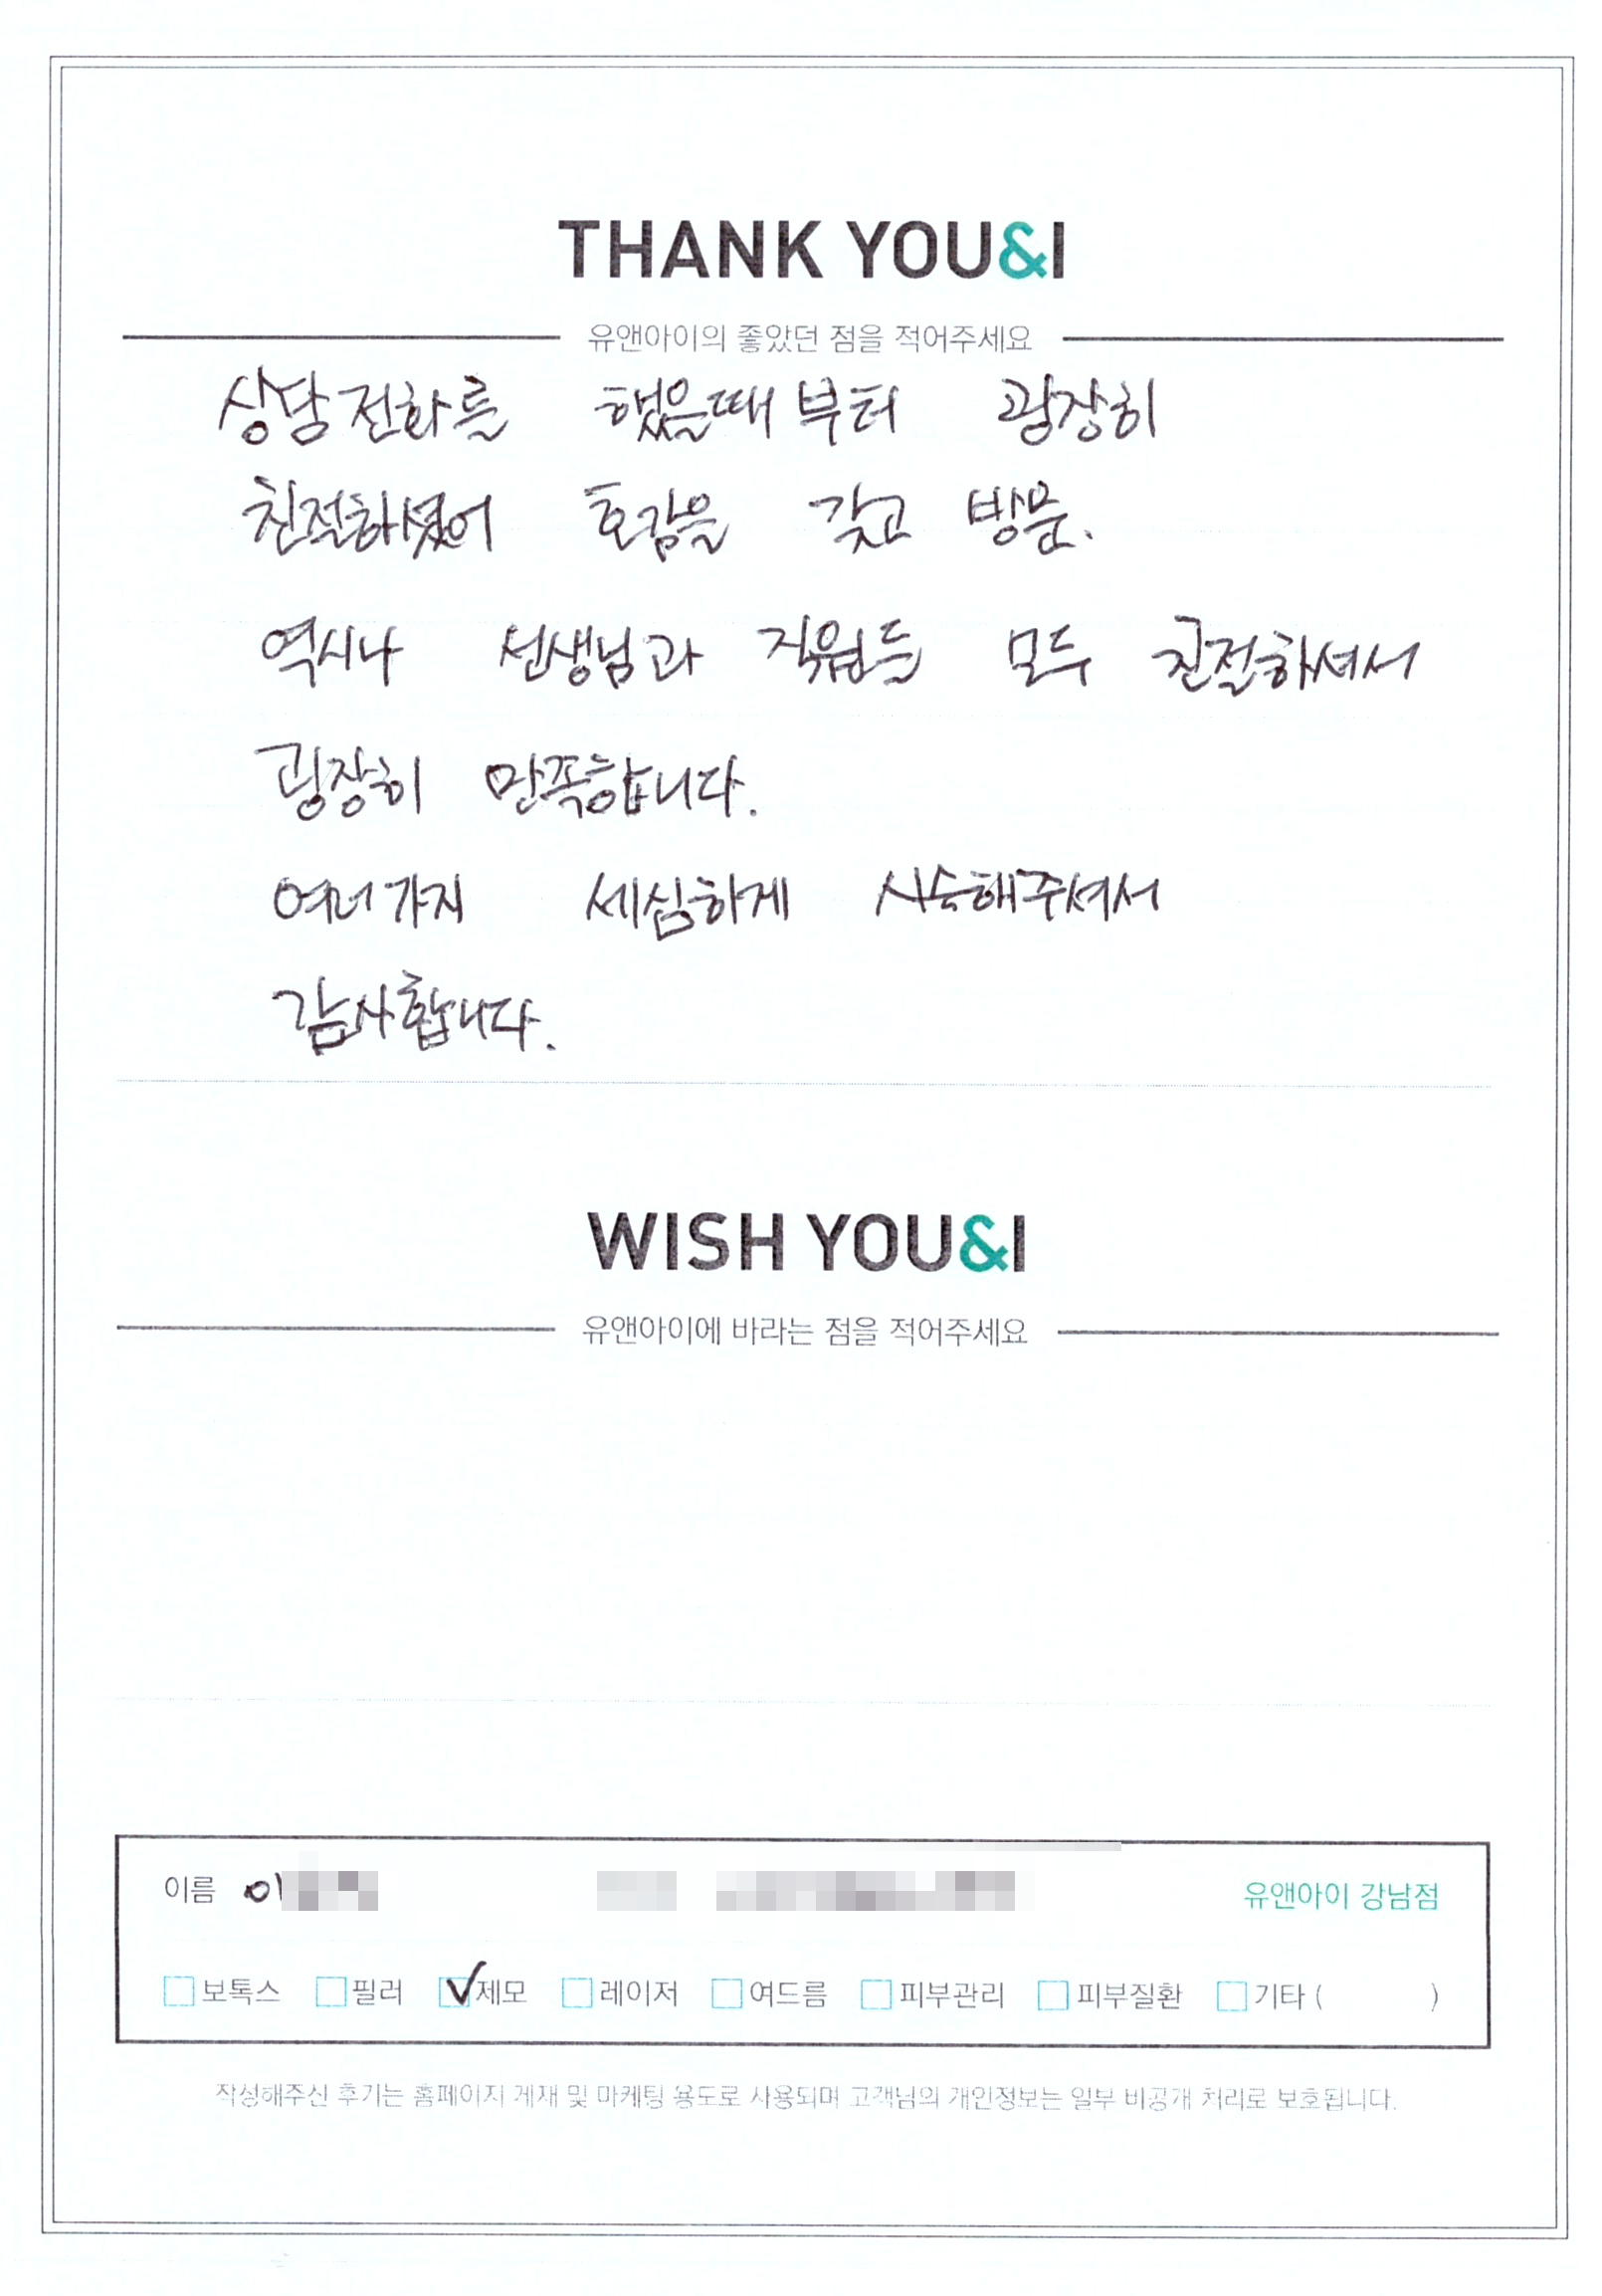 THANK YOU&I
유앤아이의 좋았던 점을 적어주세요
상담전화를 했을때부터 굉장히
친절하셨어 호감을 갖고 방문.
역시나 선생님과 직원들 모두 친절하셔서
굉장히 만족합니다.
여러가지 세심하게 시술해주셔서
감사합니다.
WISH YOU&I
유앤아이에 바라는 점을 적어주세요
이름 이 유앤아이 강남점
보톡스 필러 제모 레이저 여드름 피부관리 피부질환 기타 ( )
작성해주신 후기는 홈페이지 게재 및 마케팅 용도로 사용되며 고객님의 개인정보는 일부 비공개 처리로 보호됩니다.